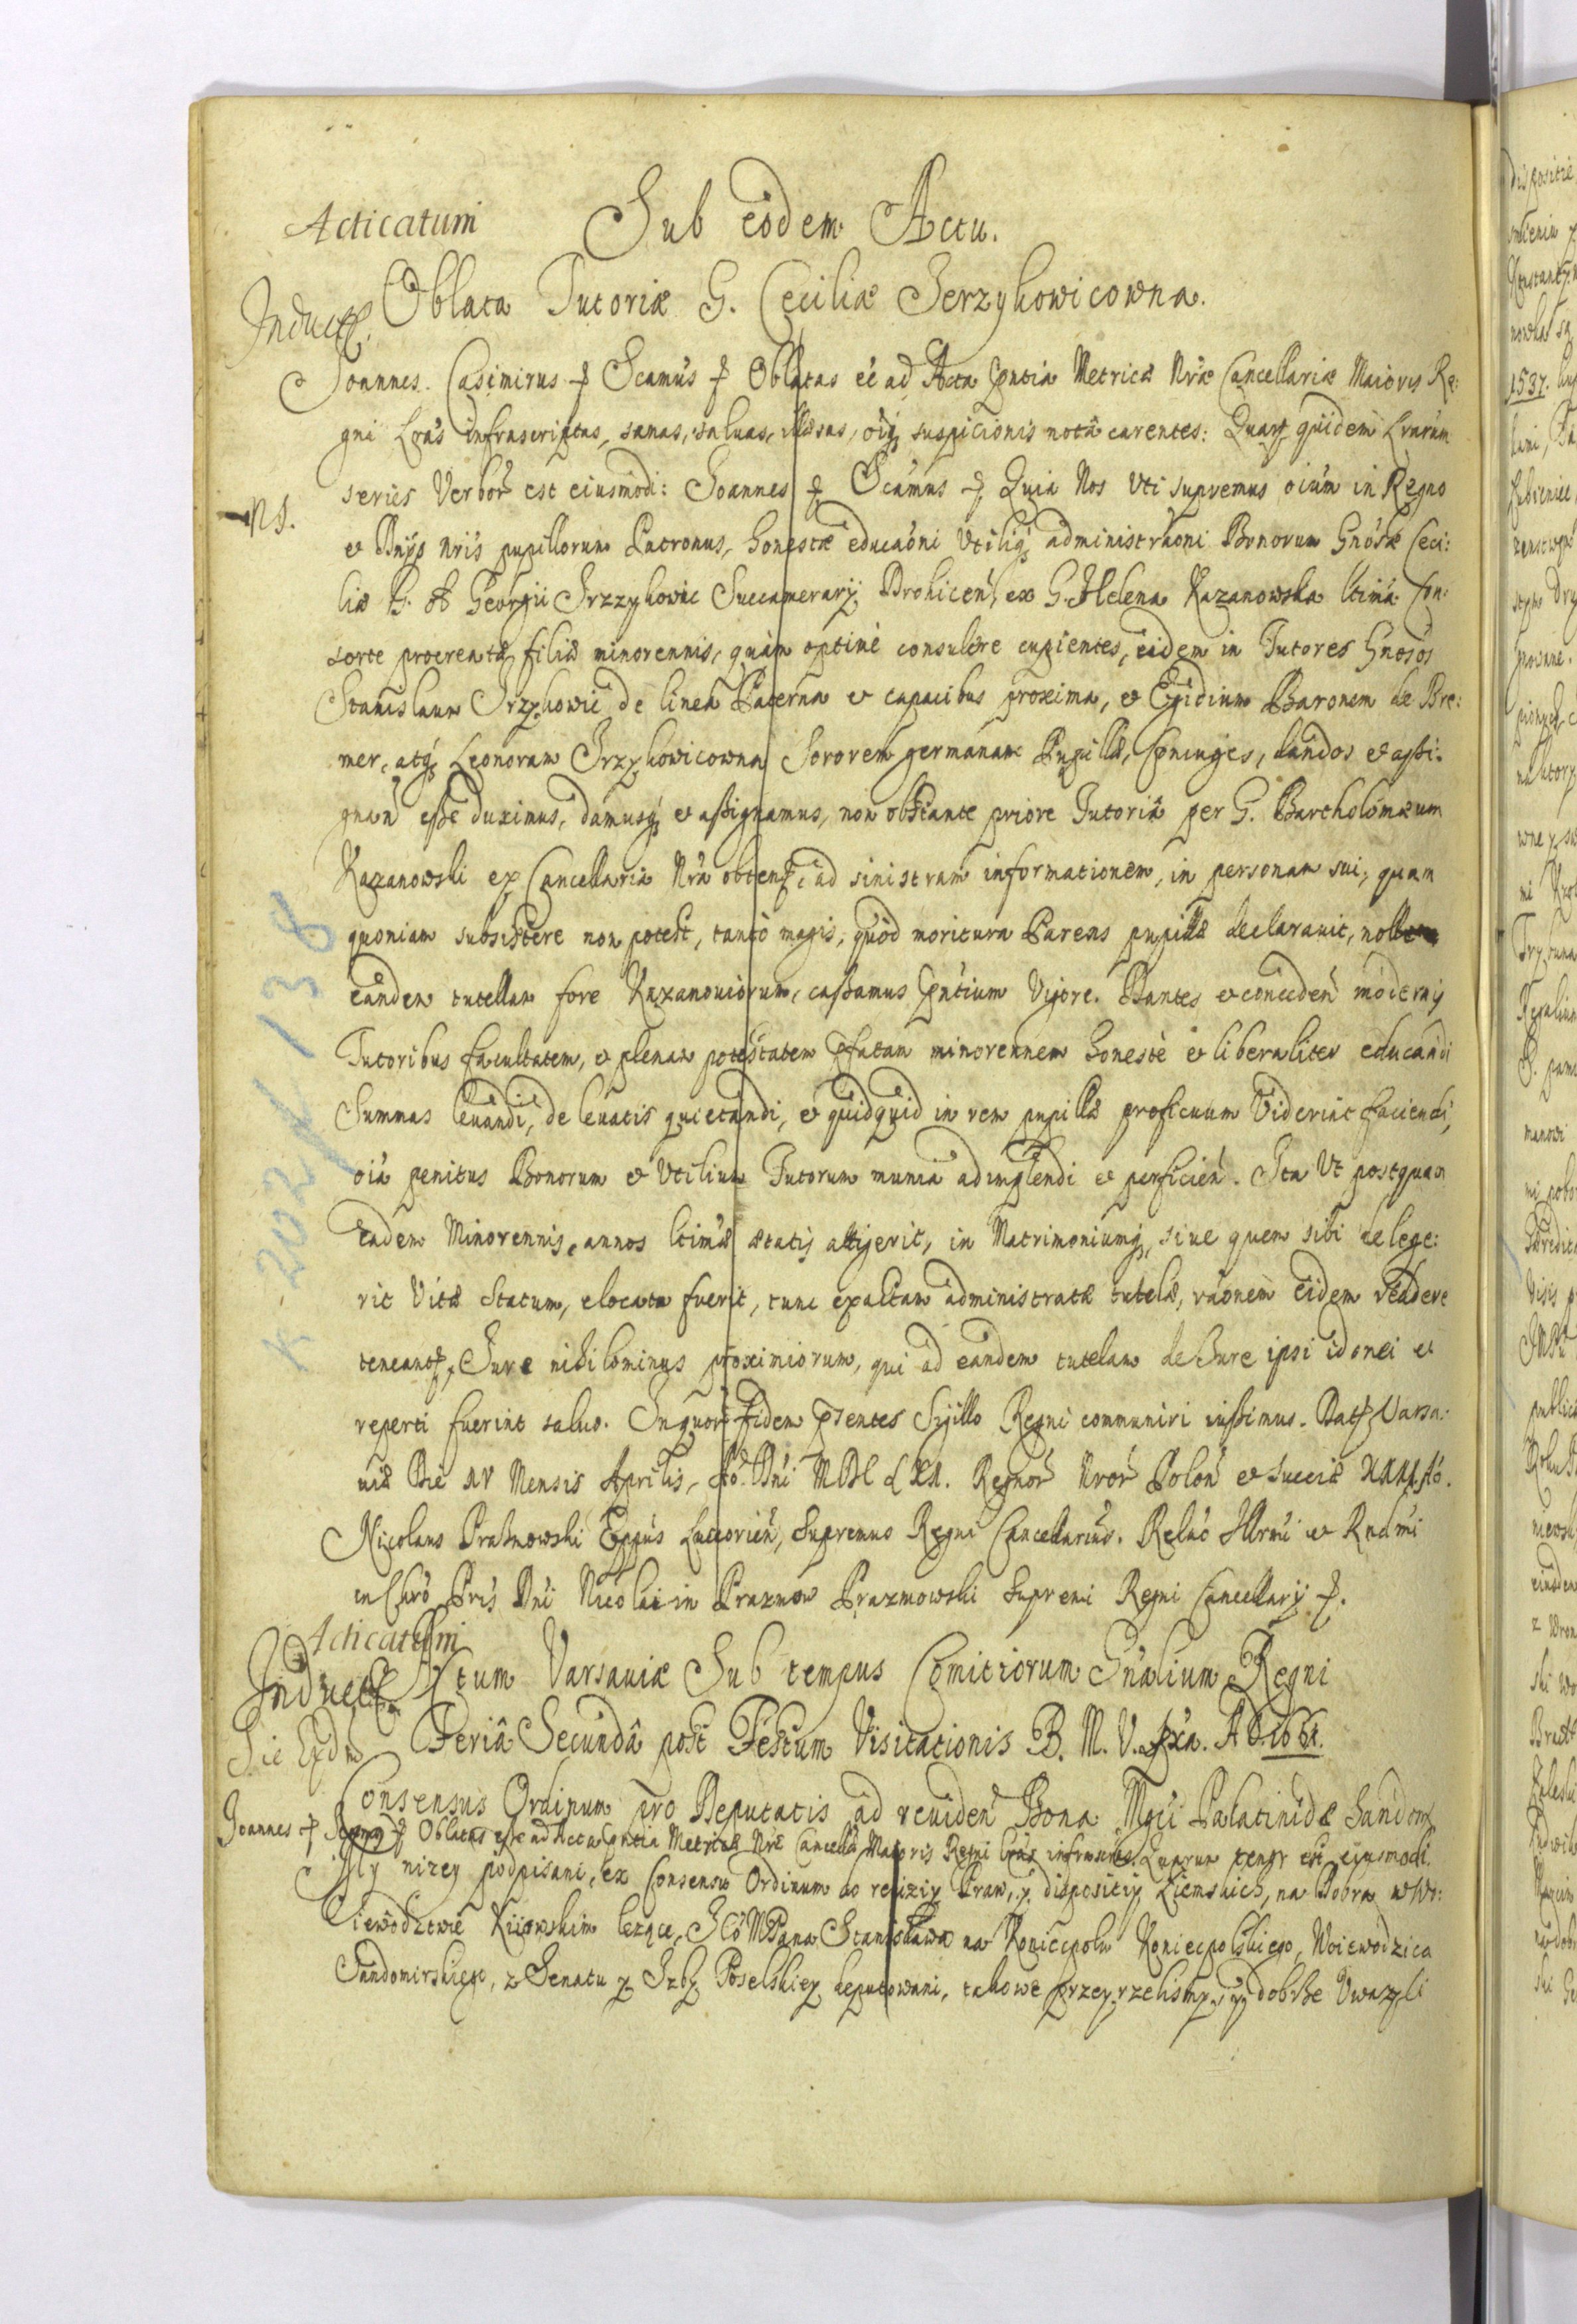 Acticatum Sub eodem Actu.
Induct. Oblata Tutoriæ G. Ceciliæ Jerzykowicowna.
Joannes Casimirus Scamus Oblatas eê ad Acta pntia Metricæ Nræ Cancellariæ Maioris Re:
gni Lras infrascriptas, sanas, saluas, illæsas, oiq suspicionis notâ carentes: Quar quidem Lrarum
series Verbor est eiusmodi: Joannes Scamus Quia Nos Vti supremus oium in Regno
NS.
et Dnijs nris pupillorum Patronus, honestæ educaoni Vtiliq administraoni Bonorum Gnosæ Ceci:
liæ G. Georgii Jrzykowic Succamerarij Drohicen, ex G. Helena Kazanowska ltima Con:
sorte procreatæ filiæ minorennis, quàm optimè consulere cupientes, eidem in Tutores Gnosos
Stanislaum Jrzykowic de linea Paterna et capacibus proxima, et Egidium Baronem de Bre:
mer, atq Leonoram Jrzykowicowna Sororem germanam Pupillæ, Coniuges, dandos et assi:
gnan esse duximus, damusq et assignamus, non obstante priore Tutoriâ per G. Bartholomæum
Kazanowski ex Cancellaria Nra obten, ad sinistram informationem, in personam sui, quam
quoniam subsistere non potest, tantò magis, quòd moritura Parens pupillæ declarauit, nolle
eandem tutellam fore Kazanouiorum, cassamus pntium Vigore. Dantes et conceden modernis
Tutoribus facultatem, et plenam potestatem pfatam minorennem honestè et liberaliter educandi
Summas leuandi, de leuatis quietandi, et quidquid in rem pupillæ proficuum Viderint faciendi,
oia penitus Bonorum et Vtilium Tutorum munia adimplendi et perficien. Ita Vt postquam
eadem Minorennis annos ltimæ ætatis attigerit, in Matrimoniumq, siue quem sibi delege:
rit Vitæ Statum, elocata fuerit, tunc exactam administratæ tutelæ, raonem eidem reddere
teneant, Jure nihilominus proximiorum, qui ad eandem tutelam de Jure ipsi idonei et
reperti fuerint saluo. In quor fidem pntes Sigillo Regni communiri iussimus. Dat Varsa:
uiæ Die XV Mensis Aprilis, Ao Dni MDCLXI. Regnor Nror Polon et Sueciæ XIII Ao.
Nicolaus Prazmowski Eppus Luceorien, Supremus Regni Cancellarius. Relao Illrmi et Rndmi
in Chro Pris Dni Nicolai in Prazmow Prazmowski Supremi Regni Cancellarij
Acticatum
Induct. Actum Varsauiæ Sub tempus Comitiorum Gnalium Regni
Sic Expdm Feriâ Secundâ post Festum Visitationis B. M. V. pxa. AD 1661.
Consensus Ordinum pro Deputatis ad reuiden Bona Mgci Palatinidæ Sandom
Joannes Scamus Oblatas esse ad Acta pntia Metricæ Nræ Cancellæ Maioris Regni lras infrascriptas Quarum tenor est eiusmodi.
My nizey podpisani, ex Consensu Ordinum do rewiziy Praw, y dispositiy Ziemskich, na Dobra w Wo:
iewodztwie Kiiowskim lezące, JoMPana Stanisława na Koniecpolu Koniecpolskiego, Woiewodzica
Sandomirskiego, z Senatu y Izby Poselskiey deputowani, takowe przeyrzelismy, y dobrze Vwazyli
K 202 / 138